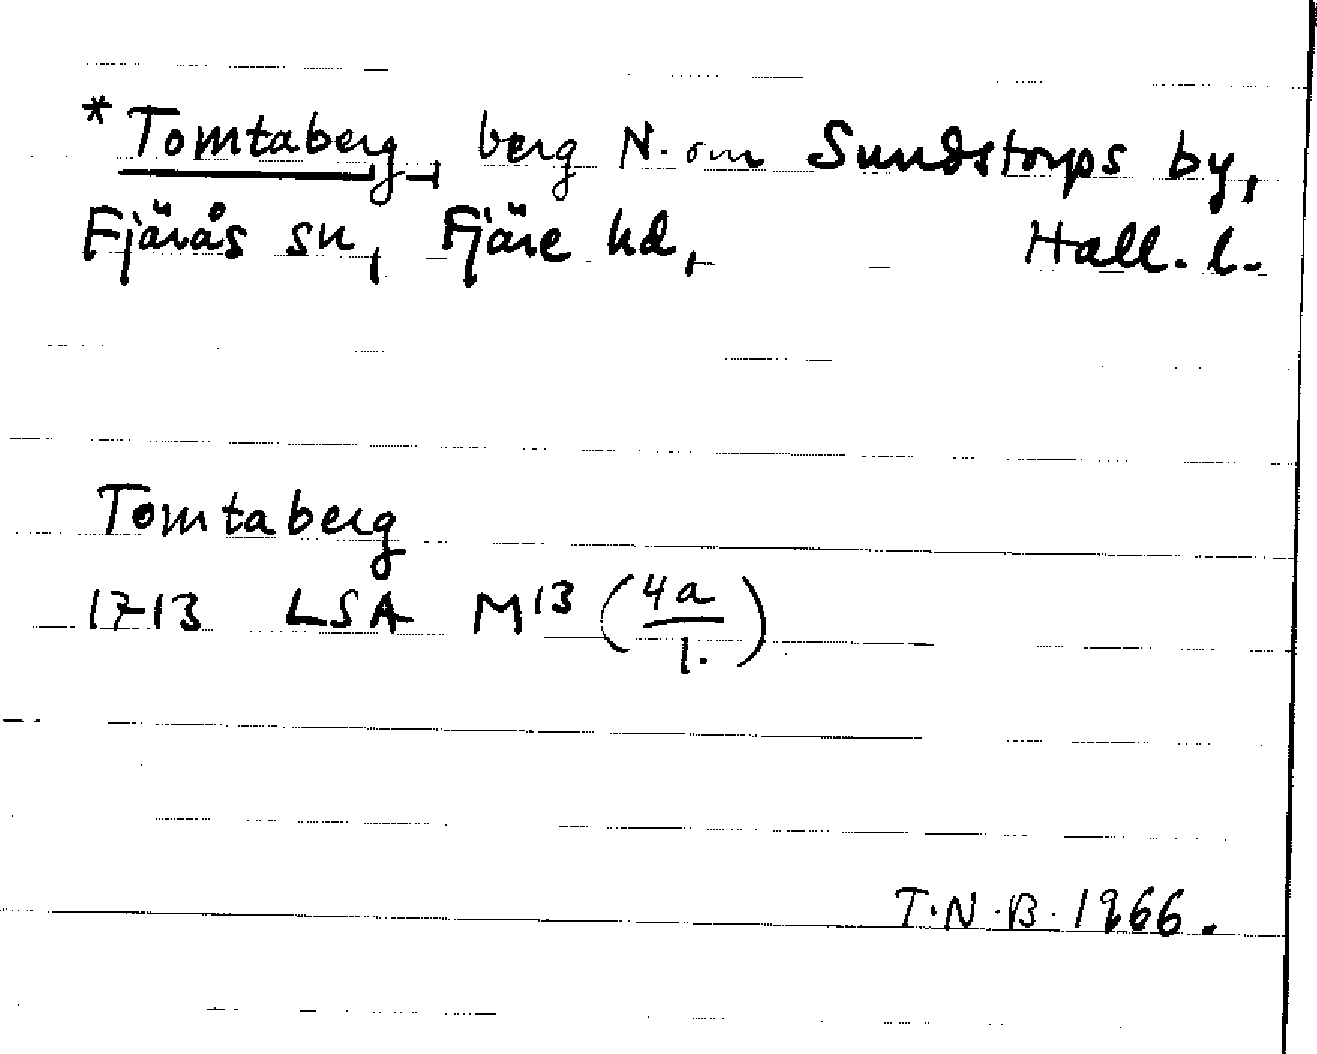 *Tomtaberg, berg N. om Sundstorps by,
Fjärås sn, Fjäre hd, Hall. l.
Tomtaberg
1713 LSA M13 (4a/1.)
T.N.B. 1966.